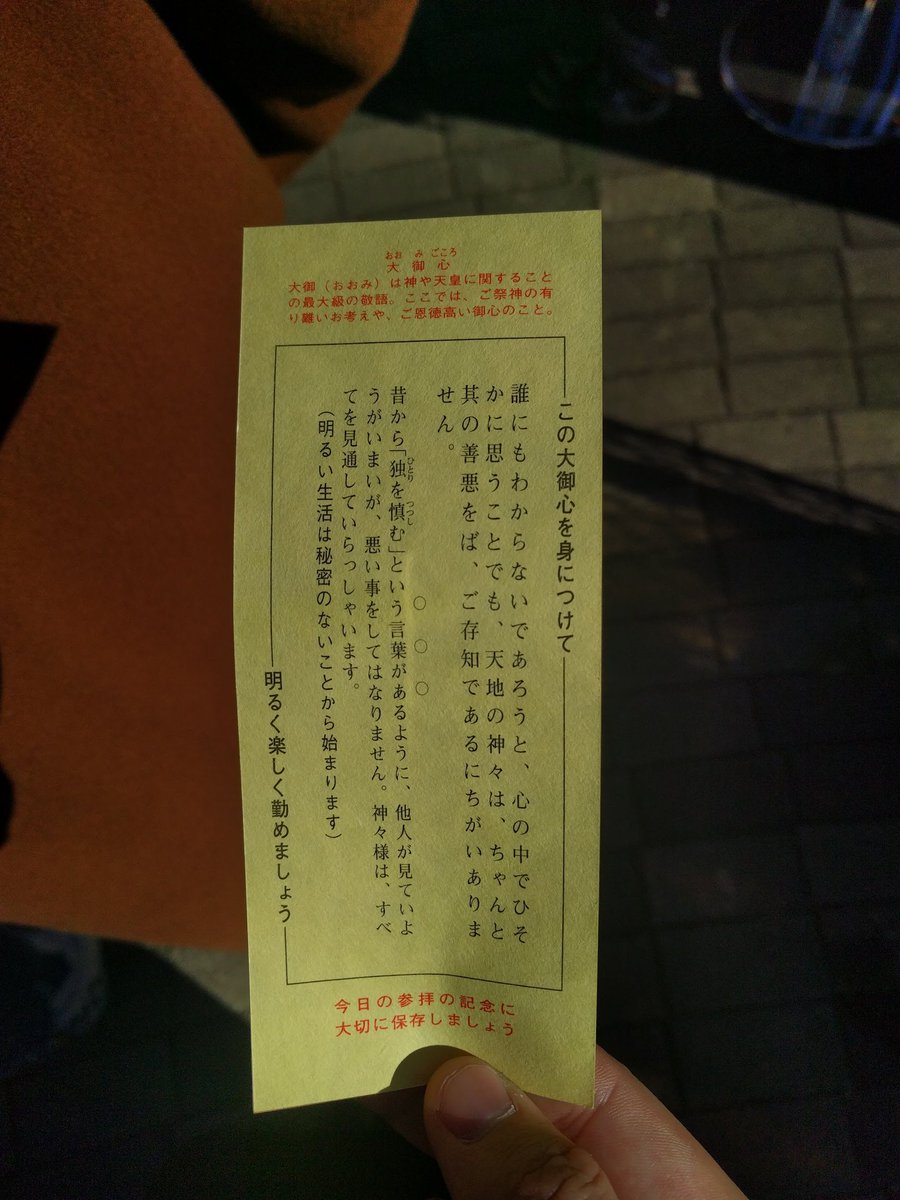 おおみごころ
大御心
大御（おおみ）は神や天皇に関すること
の最大級の敬語。ここでは、ご祭神の有
り難いお考えや、ご恩徳高い御心のこと。
この大御心を身につけて
誰にもわからないであろうと、心の中でひそ
かに思うことでも、天地の神々は、ちゃんと
其の善悪をば、ご存知であるにちがいありま
せん。
○○○
昔から「独を慎む」という言葉があるように、他人が見ていよ
ひとり つつし
うがいまいが、悪い事をしてはなりません。神々様は、すべ
てを見通していらっしゃいます。
（明るい生活は秘密のないことから始まります）
明るく楽しく勤めましょう
今日の参拝の記念に
大切に保存しましょう